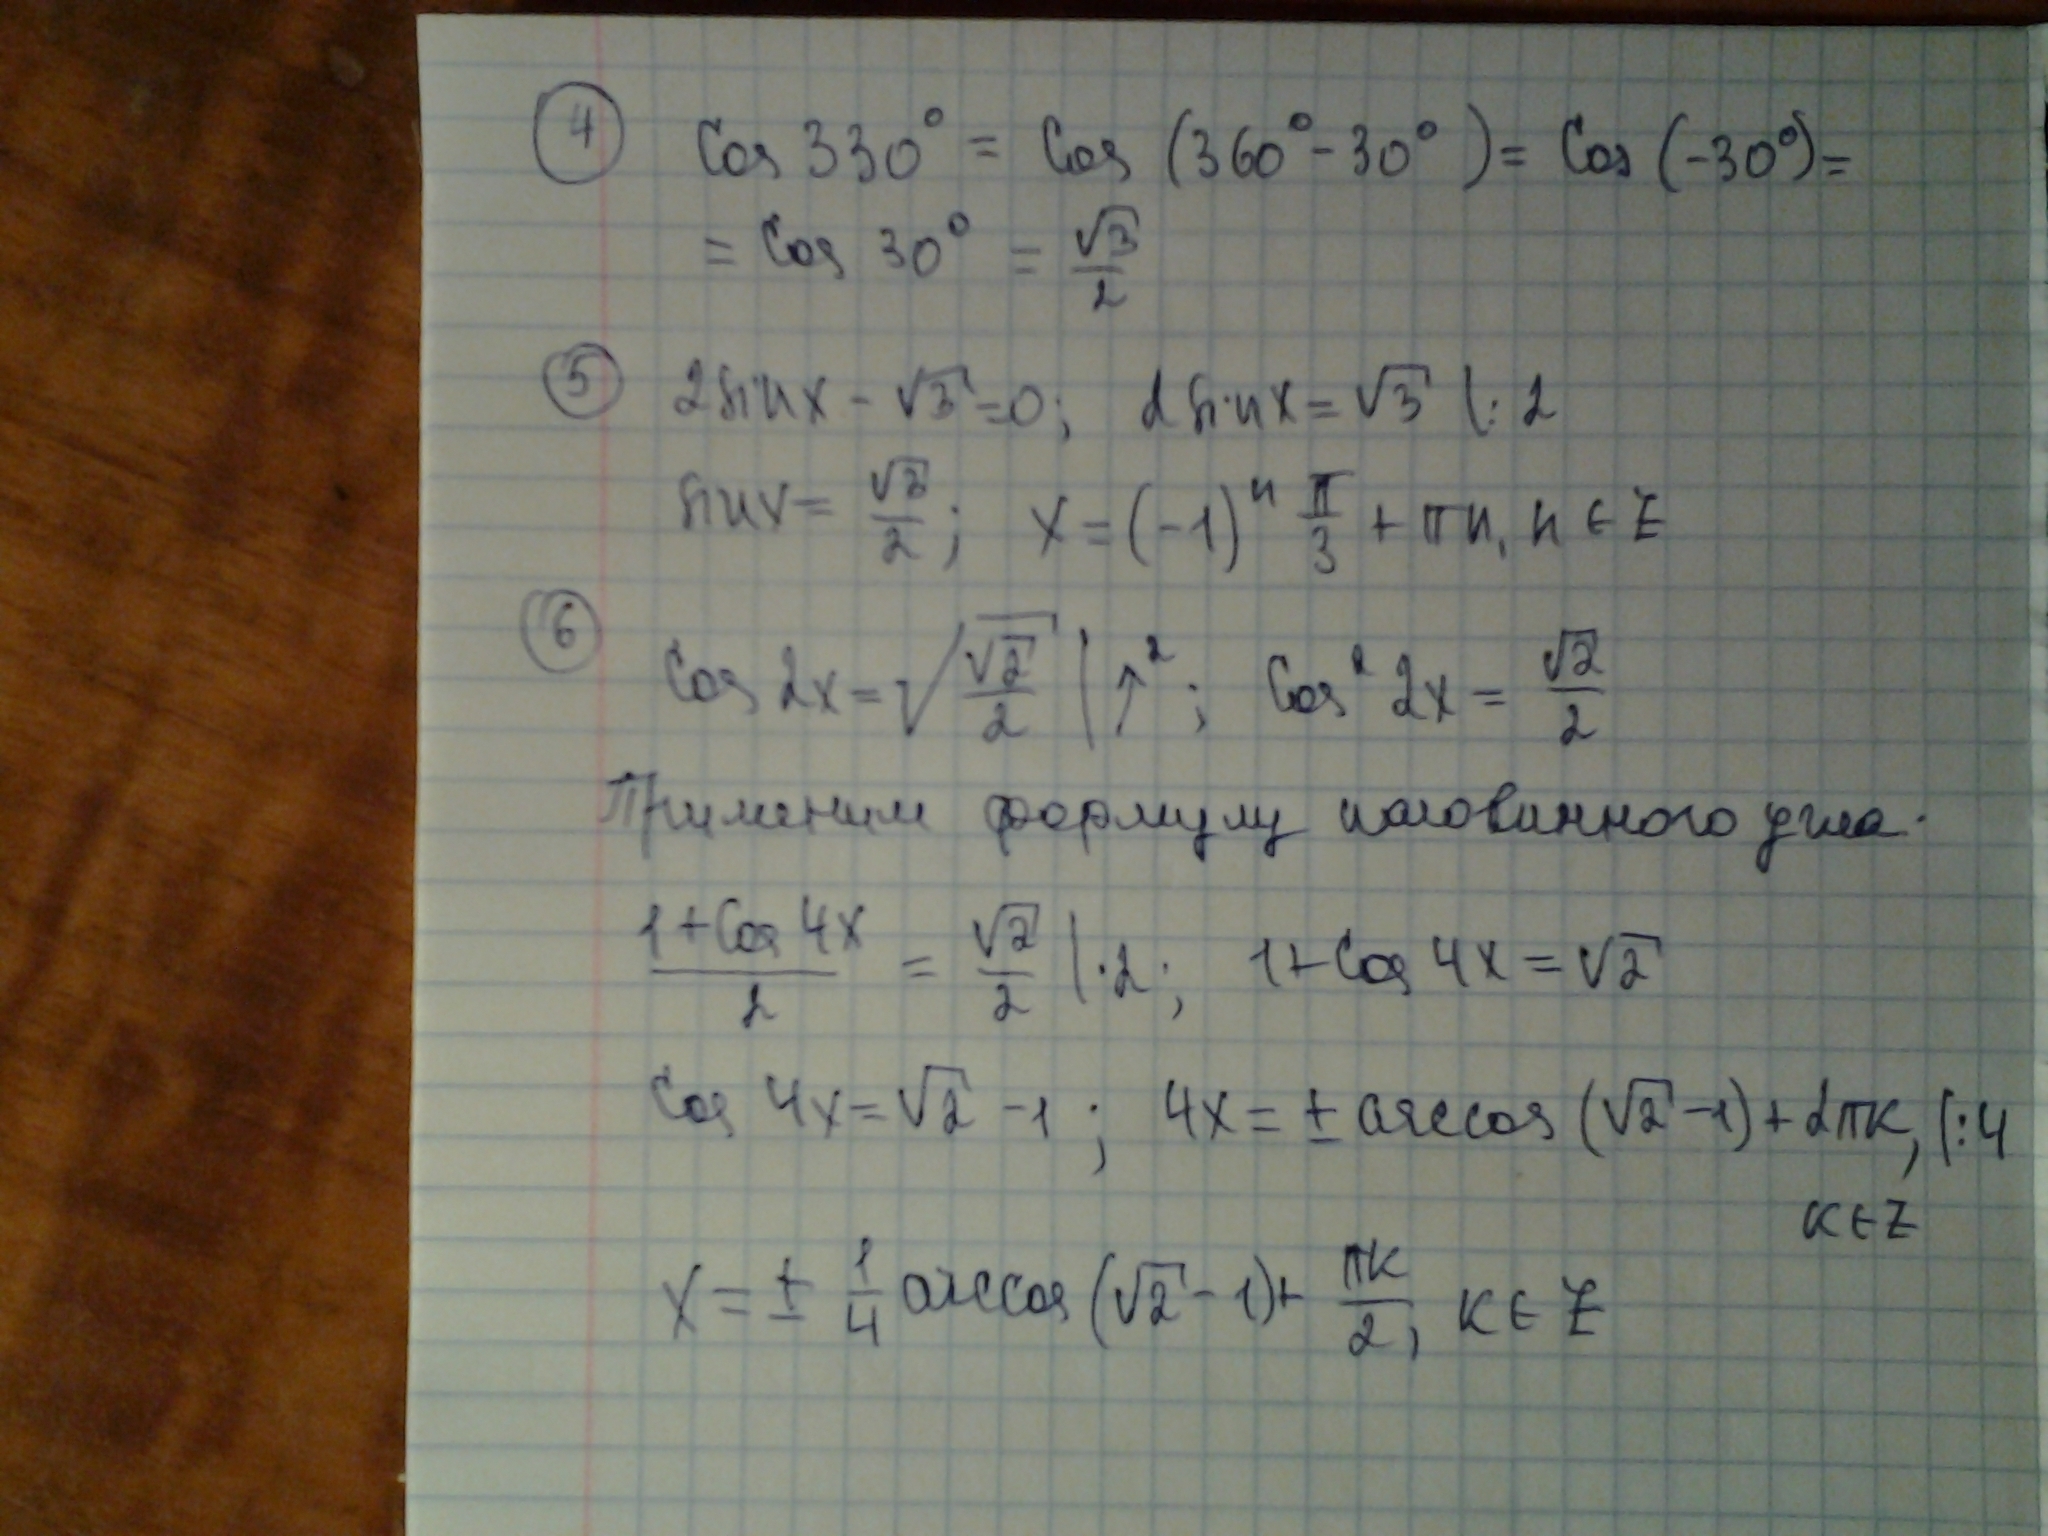 ④ Cos 330° = Cos (360° - 30°) = Cos (-30°) =
= Cos 30° = √3/2
⑤ 2sinx - √3 = 0; 2sinx = √3 |: 2
sinx = √3/2; x = (-1)ⁿ π/3 + πn, n ∈ Z
⑥ Cos 2x = √(√2/2) | ↑²; Cos² 2x = √2/2
Применим формулу половинного угла.
(1 + Cos 4x)/2 = √2/2 | · 2; 1 + Cos 4x = √2
Cos 4x = √2 - 1; 4x = ± arccos (√2 - 1) + 2πk, |: 4
k ∈ Z
x = ± 1/4 arccos (√2 - 1) + πk/2, k ∈ Z